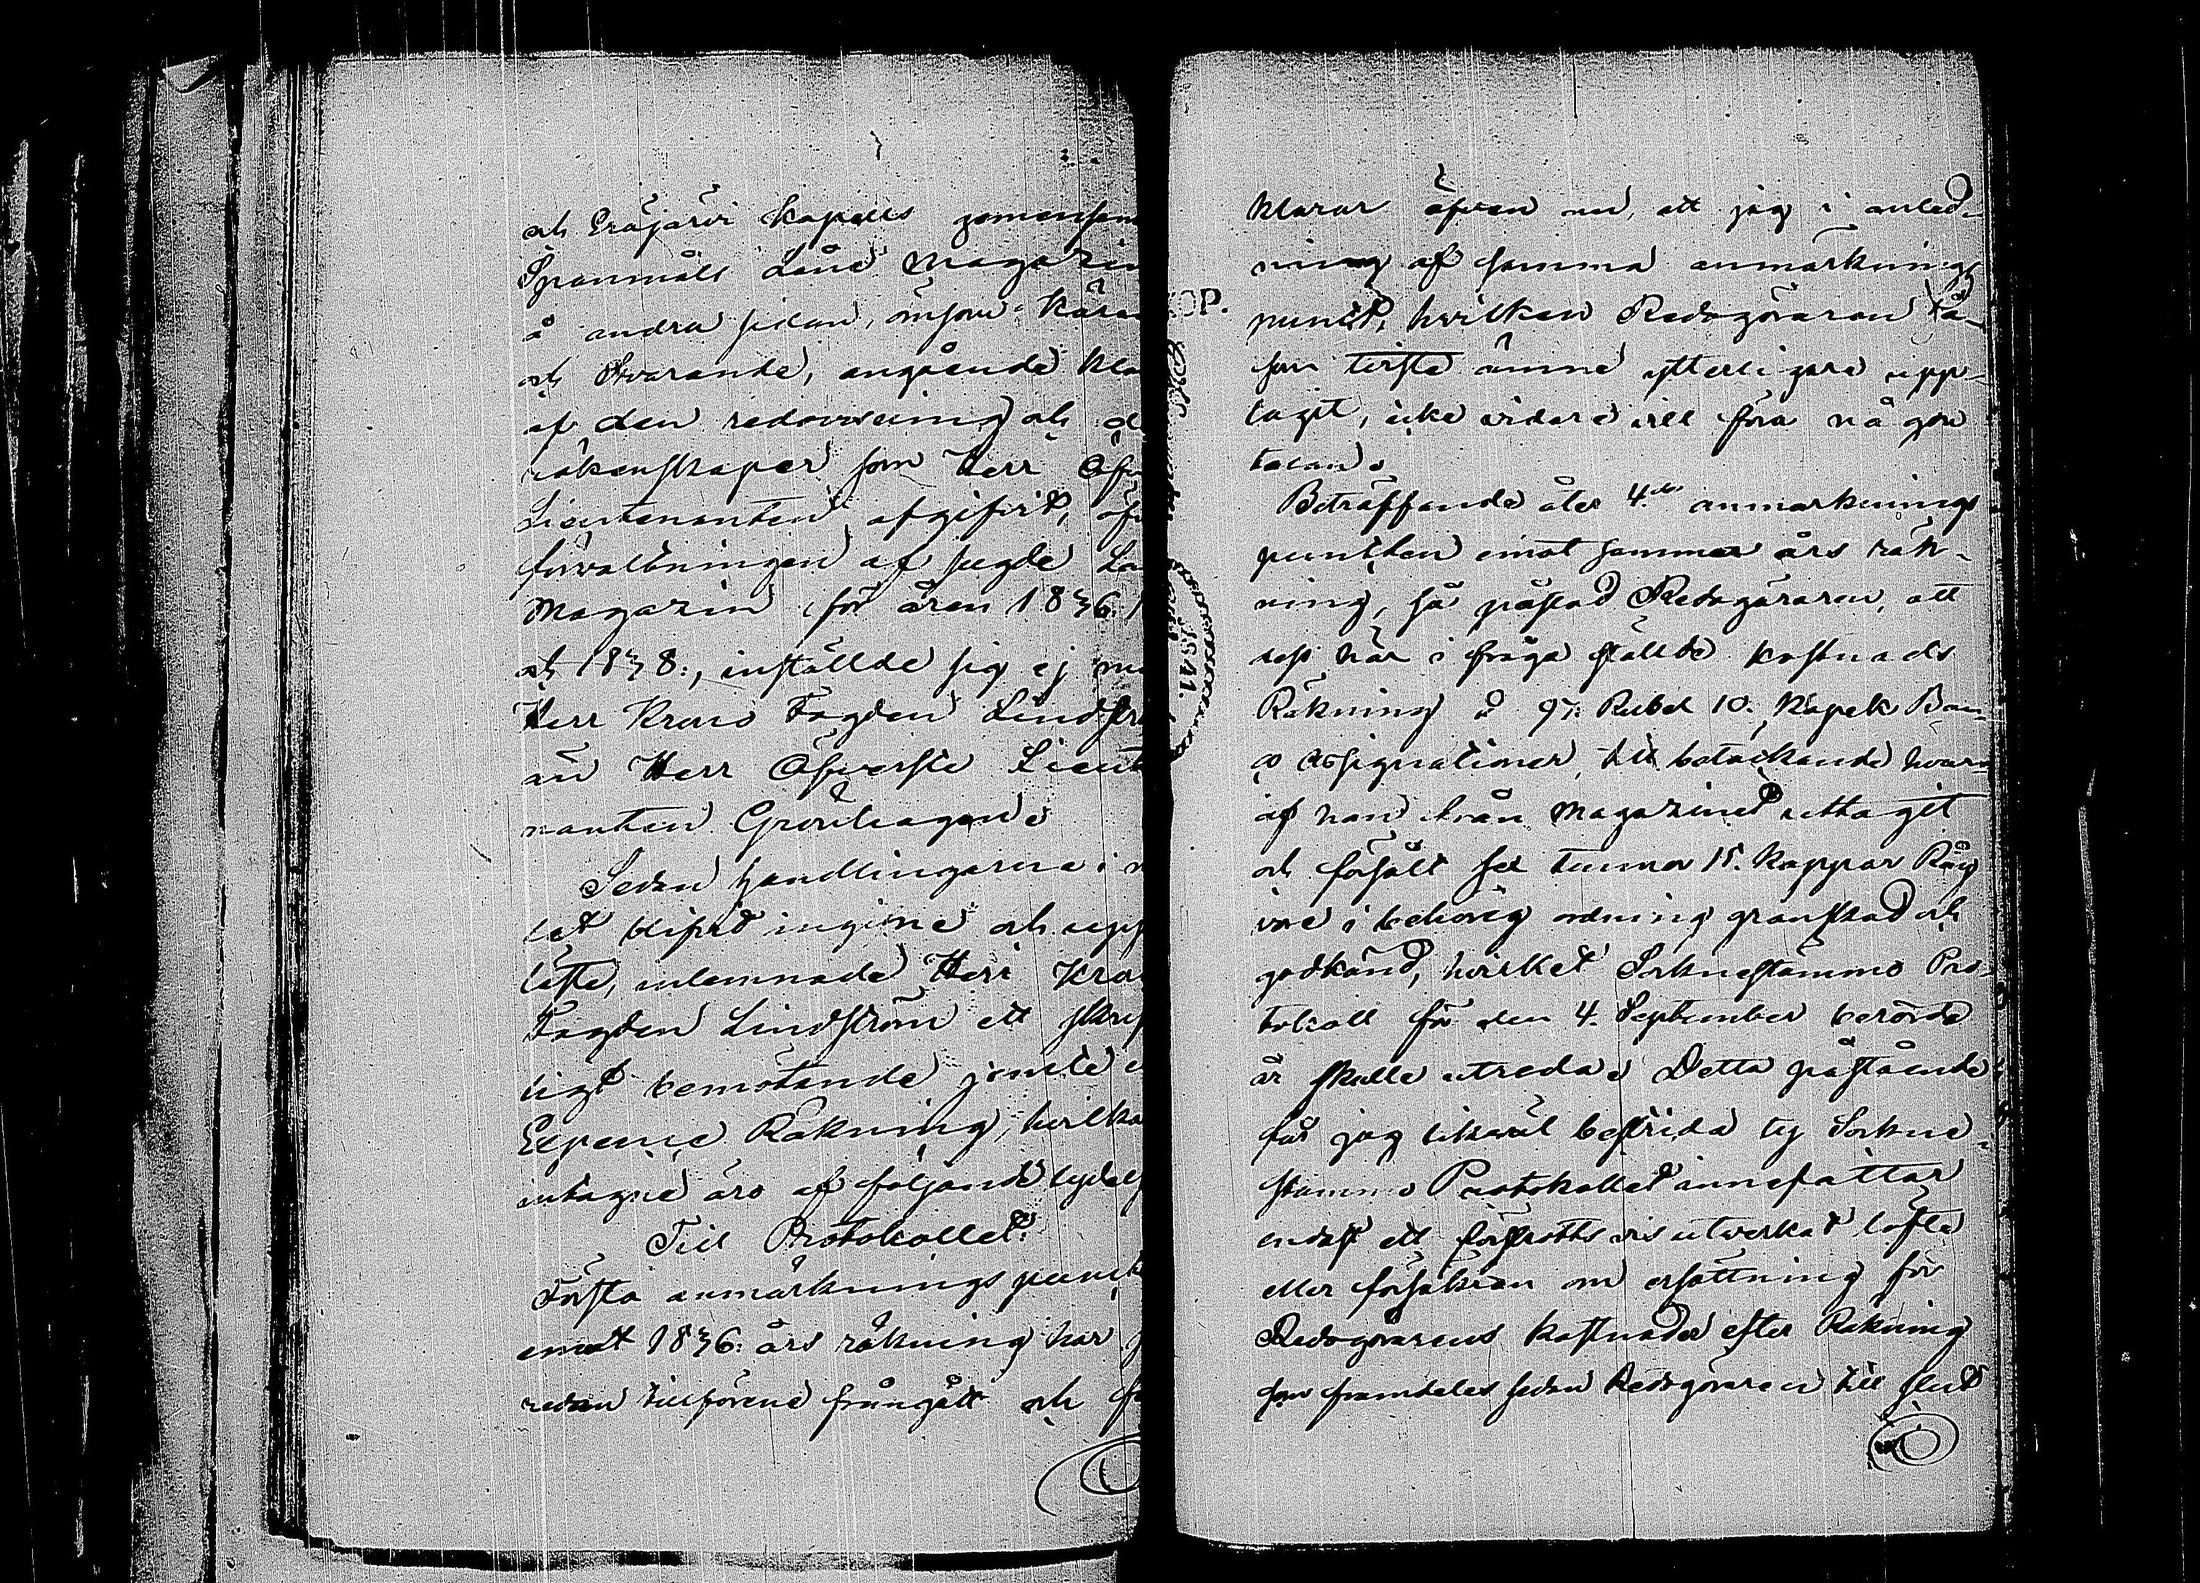 och Eräjärvi Kapells gemensam
Spanmåls Låne Magazin
å andra sidan, ömsom Käran
och Svarande, angående kla
af den redovisning och de
räkenskaper som Herr Öfv
Lieutenanten afgifvit, öfv
förvaltningen af sagde La
Magazin för åren 1836. 1
och 1838:, inställde sig ej m
Herr Krono Fogden Lindstr
än Herr Öfverste Lieut
nanten Grönhagen.
Sedan handlingarne i m
let blifvit ingifne och upp
läste, inlemnade Herr Kron
Fogden Lindström ett skrif
ligt bemötande jemte e
Expence Räkning, hvilka
intagne äro af följande lydels
Till Protokollet.
Första anmärknings punck
emot 1836. års räkning har j
redan tillförene frångått och f
klarar äfven nu, att jag i anled-
ning af samma anmärknings
punct, hvilken Redogöraren så-
som tviste ämne ytterligare upp-
tagit, icke vidare vill föra någon
talan.
Beträffande åter 4.de anmärknings
puncten emot samma års räk-
ning, så påstod Redogöraren, att
dess här i fråga ställde kostnads
Räkning å 97. Rubel 10. Kopek Ban-
co assignationer, till betäckande hvar-
af han ifrån Magazinet uttagit
och försålt sex tunnor 15. kappar Råg
vore i behörig ordning granskad och
godkänd, hvilket Socknestämmo Pro-
tokoll för den 4. September berörde
år skulle utreda. Detta påstående
får jag likväl bestrida ty Sockne-
stämmo Protokollet innefattar
endast ett förskotts vis utverkat löfte
eller försäkran om ersättning för
Redogörarens kostnader efter Räkning
som framdeles sedan Redogöraren till slut